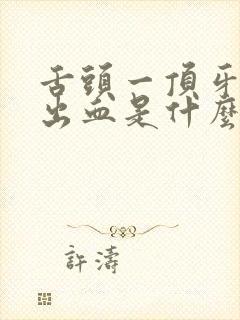 舌頭一頂牙
出血是什麼
許濤